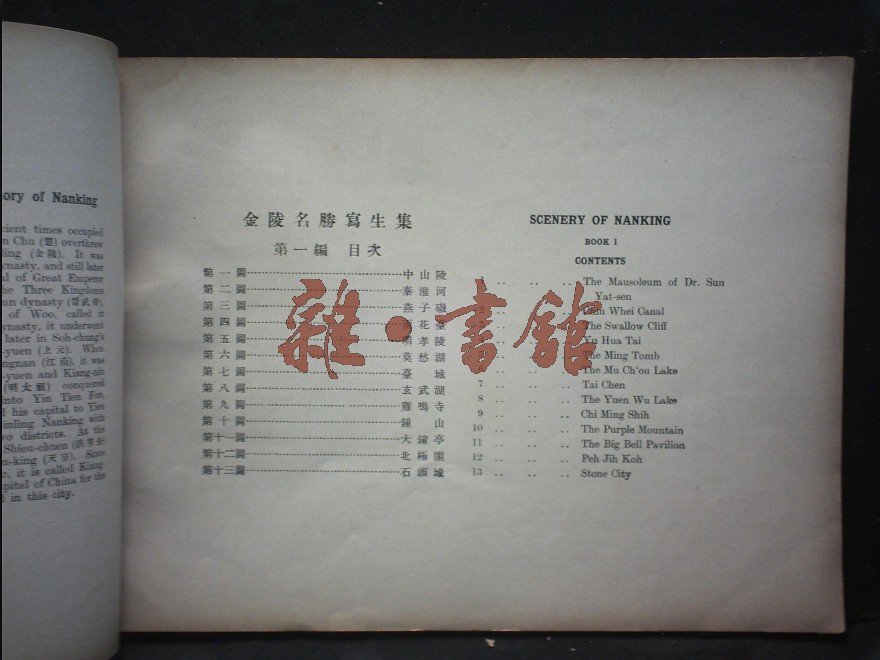 ory of Nanking
cient times occupied
n Chu (楚) overthrew
ling (金陵). It was
nasty, and still later
al of Great Emperor
the Three Kingdoms
un dynasty
of Woo, called it
ynasty, it underwent
later in Soh-chung's
-yuen (上元). When
ngnan (江南), it was
-yuen and Kiang-nin
(明太祖) conquered
into Yin Tien Foo,
d his capital to Yien
inling Nanking with
wo districts. At the
Shieu-chuen
n-king (天京). Since
it is called Kiang-
pital of China for the
d in this city.
金陵名勝寫生集
第一編 目次
第一圖 中山陵
第二圖 秦淮河
第三圖 燕子磯
第四圖 花臺
第五圖 明孝陵
第六圖 莫愁湖
第七圖 臺城
第八圖 玄武湖
第九圖 雞鳴寺
第十圖 鍾山
第十一圖 大鐘亭
第十二圖 北極閣
第十三圖 石頭城
SCENERY OF NANKING
BOOK I
CONTENTS
1 .. .. The Mausoleum of Dr. Sun
Yat-sen
2 .. .. Whei Canal
The Swallow Cliff
Hua Tai
The Ming Tomb
6 .. .. The Mu Ch'ou Lake
7 .. .. .. Tai Chen
8 .. .. .. The Yuen Wu Lake
9 .. .. .. Chi Ming Shih
10 .. .. .. The Purple Mountain
11 .. .. .. The Big Bell Pavilion
12 .. .. .. Peh Jih Koh
13 .. .. .. Stone City
雜·書館